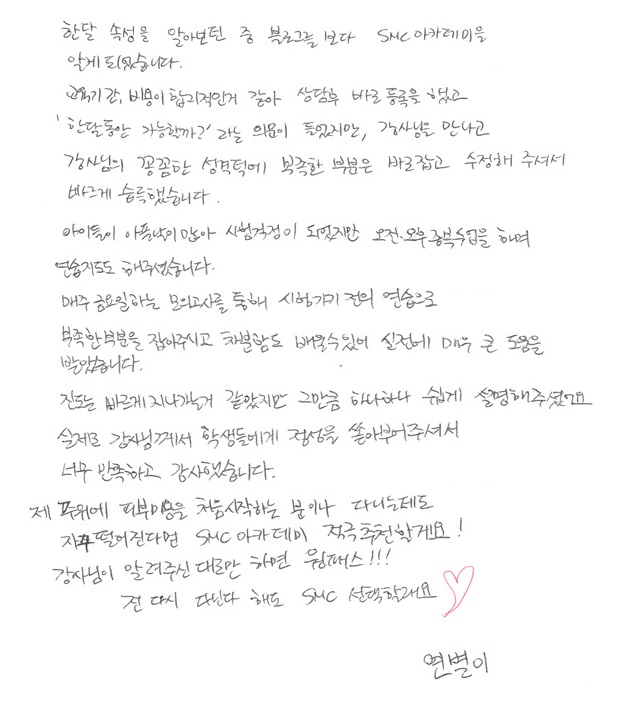 한달 속성을 알아보던 중 블로그를 보다 SMC아카데미을
알게 되었습니다.
교육기간, 비용이 합리적인거 같아 상담후 바로 등록을 했고
'한달동안 가능할까?' 라는 의문이 들었지만, 강사님을 만나고
강사님의 꼼꼼한 성격덕에 부족한 부분은 바로잡고 수정해 주셔서
빠르게 습득했습니다.
아이들이 아픈날이 많아 시험걱정이 되었지만 오전·오후 중복수업을 하며
연습지도도 해주셨습니다.
매주 금요일하는 모의고사를 통해 시험가기 전의 연습으로
부족한부분을 잡아주시고 차분함도 배울수있어 실전에 매우 큰 도움을
받았습니다.
진도는 빠르게 지나가는거 같았지만 그만큼 하나하나 쉽게 설명해주셨어요
실제로 강사님께서 학생들에게 정성을 쏟아부어주셔서
너무 만족하고 감사했습니다.
제 주위에 피부미용을 처음시작하는 분이나 다니는데도
자꾸 떨어진다면 SMC 아카데미 적극추천할게요!
강사님이 알려주신 대로만 하면 원패스!!!
전 다시 다닌다 해도 SMC 선택할래요
연별이